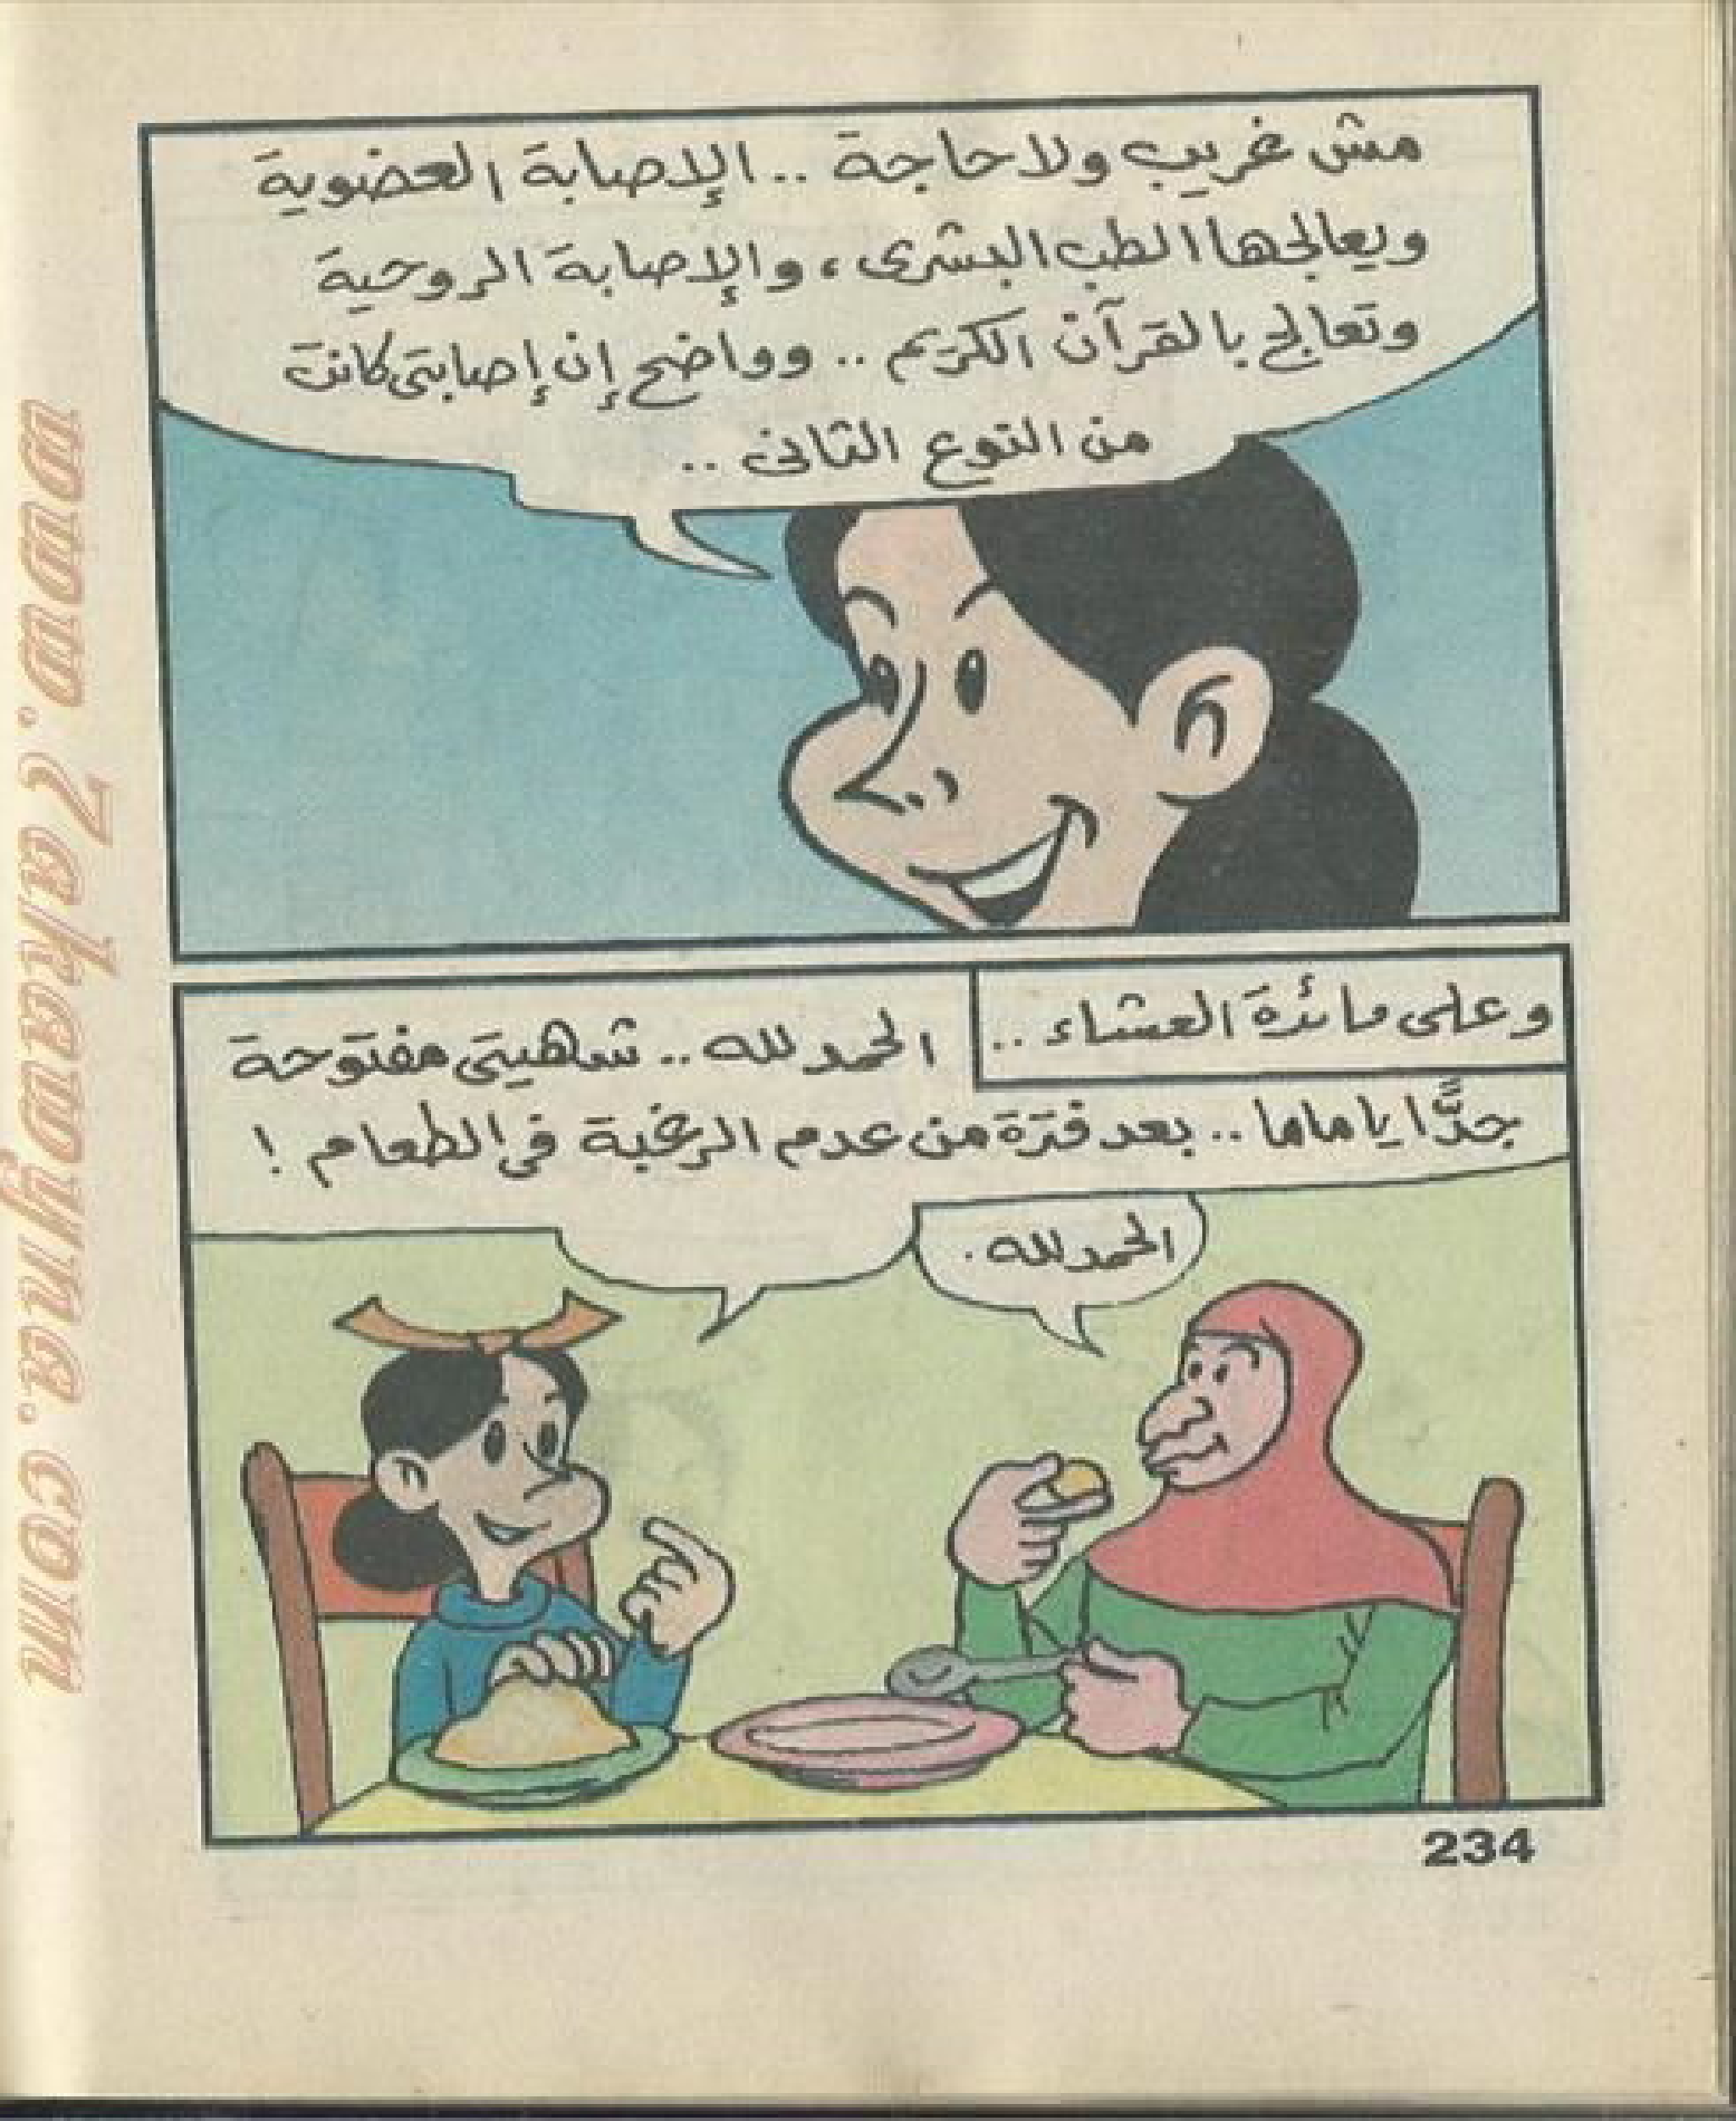 مش غريب ولا حاجة .. الإصابة العضوية
ويعالجها الطب البشرى ، والإصابة الروحية
وتعالج بالقرآن الكريم .. وواضح إن إصابتى كانت
من النوع الثانى ..
وعلى مائدة العشاء ..
الحمد لله .. شاهيتى مفتوحة
جدًّا يا ماما .. بعد فترة من عدم الرغبة فى الطعام !
الحمد لله .
234
www.7akawyna.com